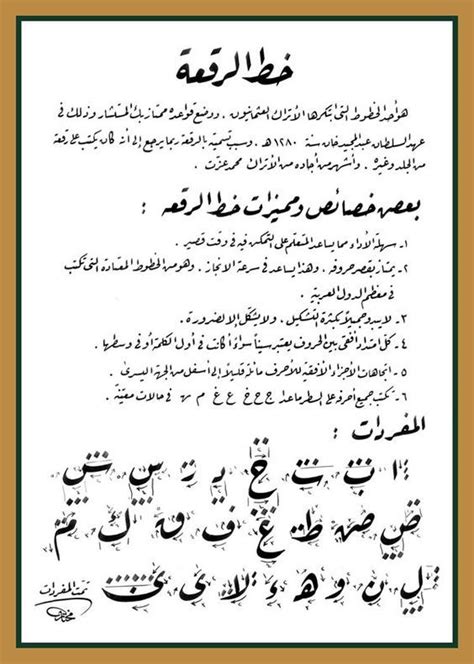 خط الرقعة
هو أحد الخطوط التى ابتكرها الأتراك العثمانيون . ووضع قواعده ممتاز بك المستشار وذلك فى
عهد السلطان عبد المجيد خان سنة ١٢٨٠ هـ . وسبب تسميته بالرقعة ربما يرجع إلى أنه كان يكتب على رقعة
من الجلد وغيره . وأشهر من أجاده من الأتراك محمد عزت .
بعض خصائص ومميزات خط الرقعه :
١- سهلة الأداء مما يساعد المتعلم على التمكن فيه فى وقت قصير .
٢- يمتاز بقصر حروفه . وهذا يساعد فى سرعة الانجاز . وهو من الخطوط المعتادة التى تكتب
فى معظم الدول العربية .
٣- لا يبدو جميلاً بكثرة التشكيل . ولا يشكل إلا لضرورة .
٤- كل امتداد أفقى بين الحروف يعتبر سيئاً سواء أكانت فى أول الكلمة أو فى وسطها .
٥- اتجاهات الأجزاء الأفقية للأحرف مائلة قليلاً إلى أسفل من الجهة اليسرى .
٦- تكتب جميع أحرفه على السطر ماعدا ج ح خ ع غ م ه فى حالات معينة .
المفردات :
ا ب ت ث ج د ر س ش
ص ض ط ع ف ق ك م
ل ن و ه ء لا ى
تمت المفردات